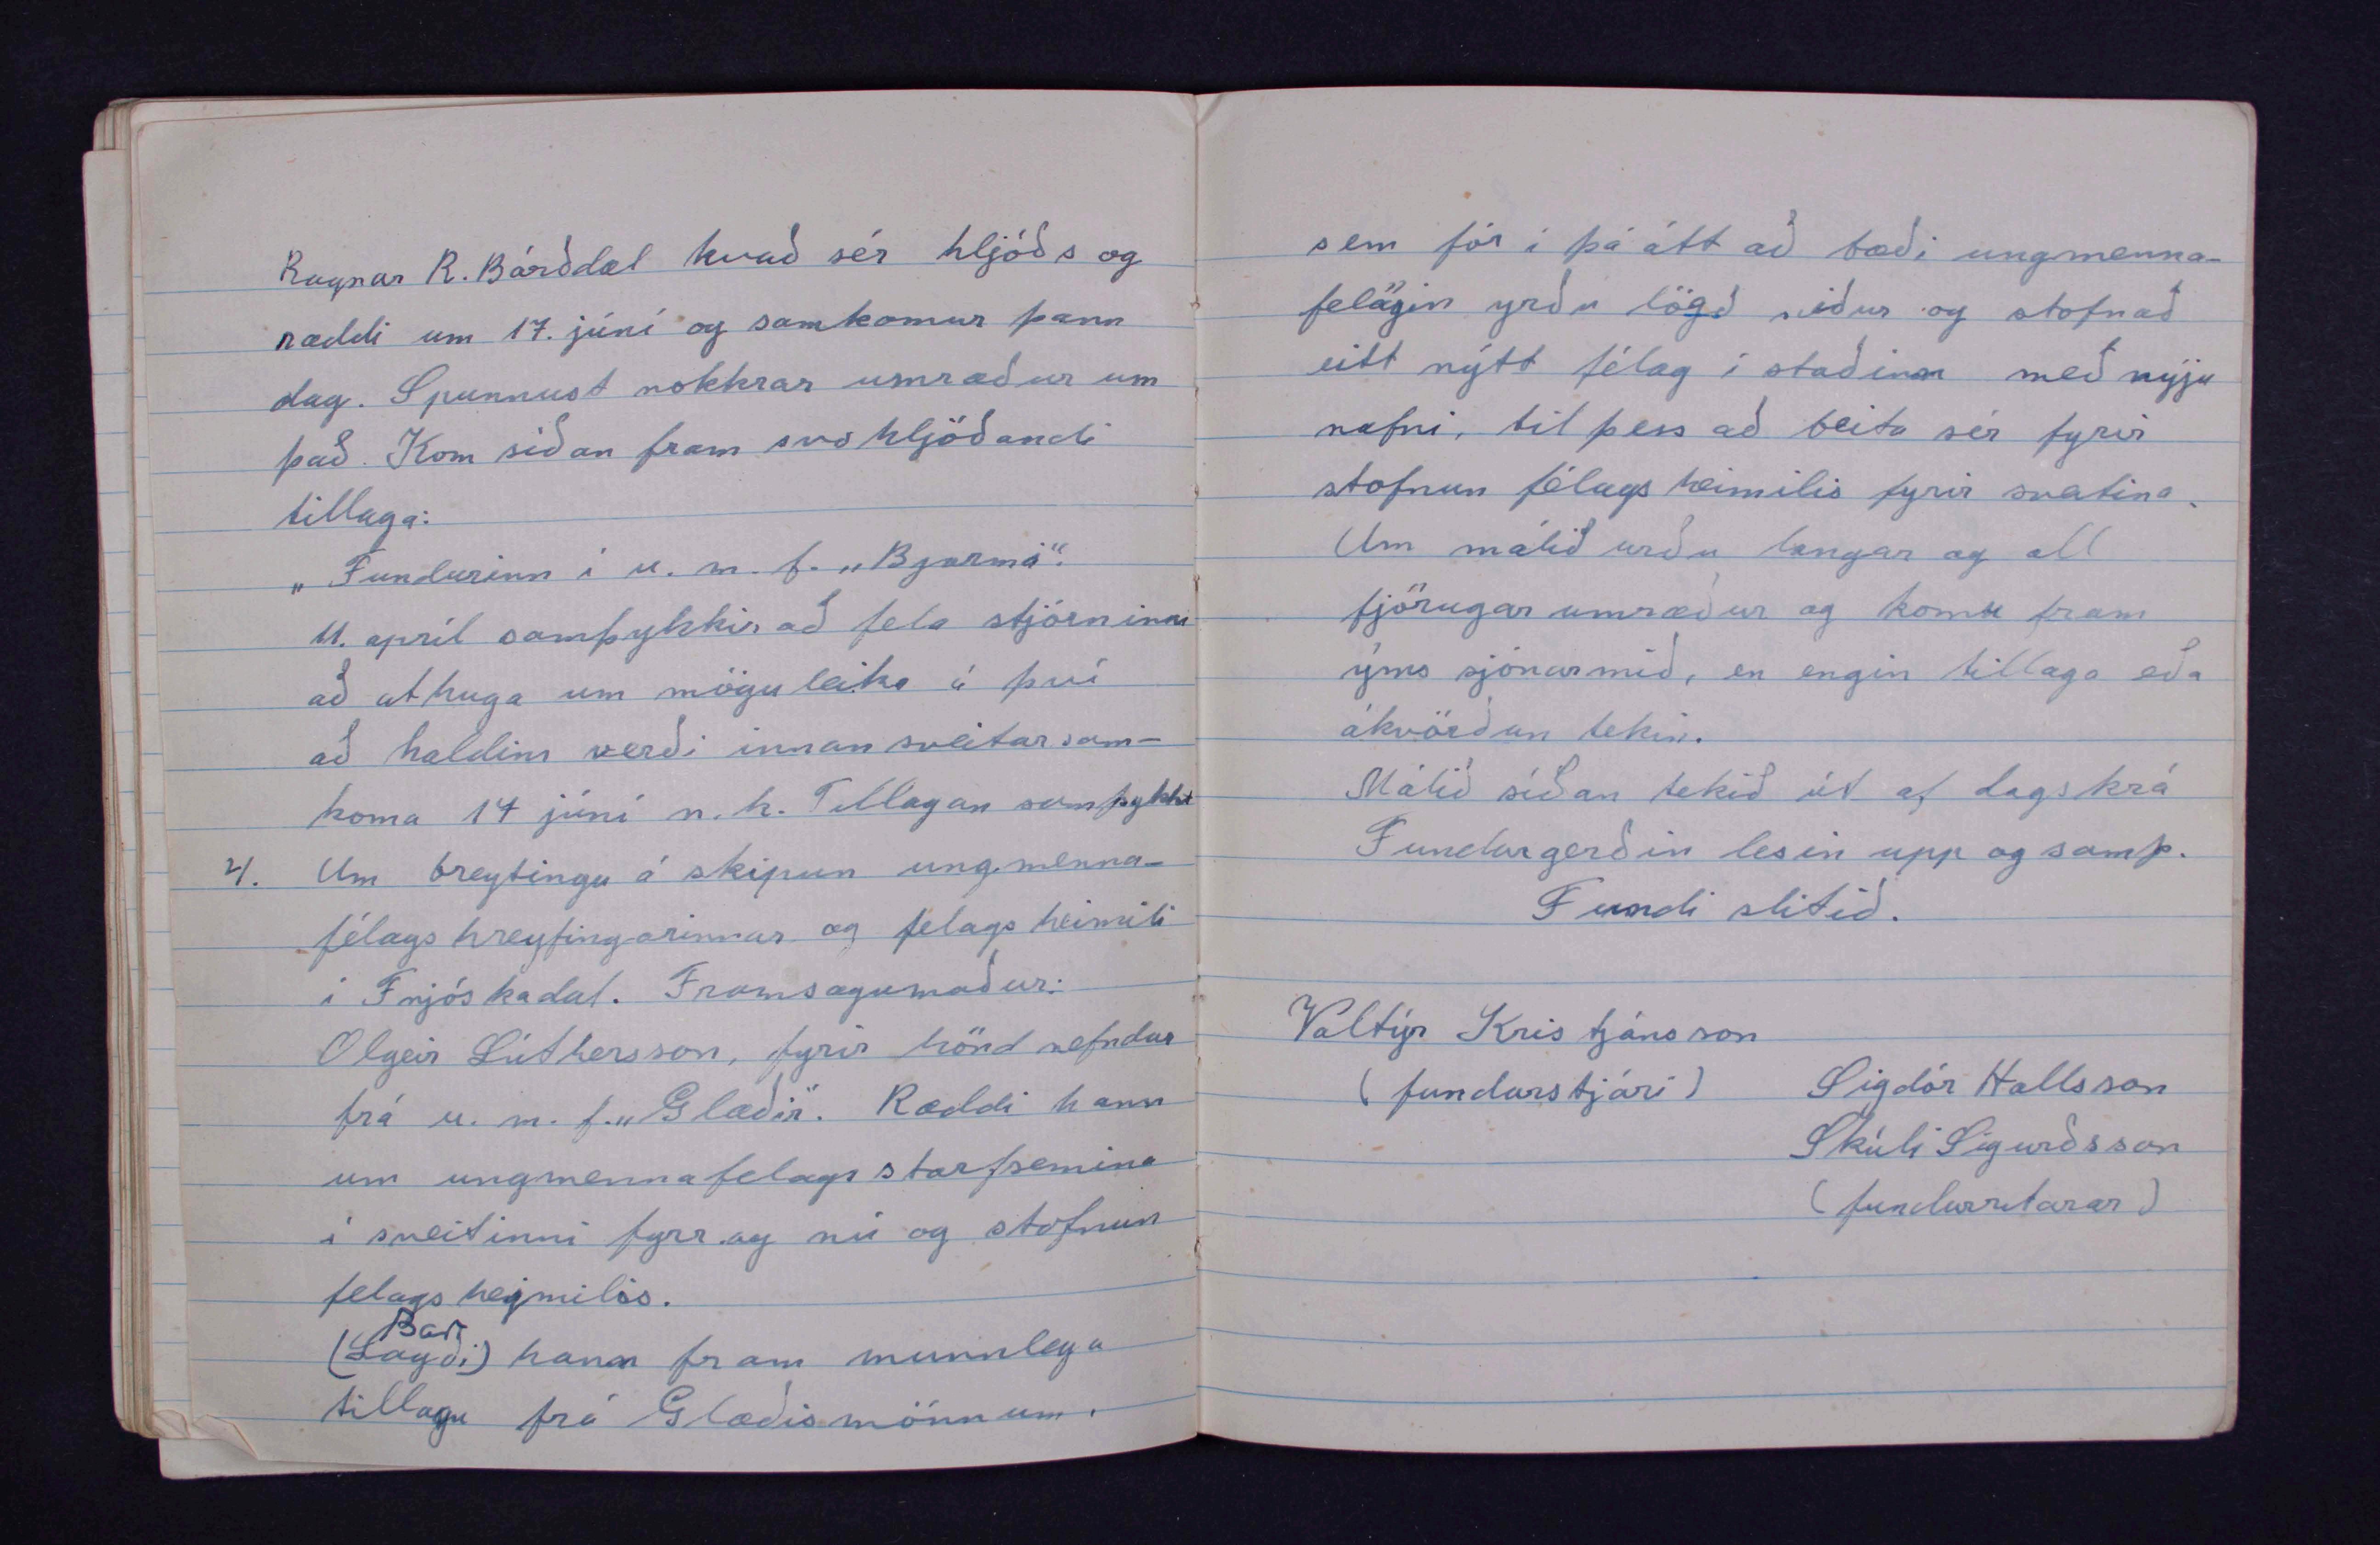 Ragnar R. Bárðdal kvað sér hljóðs og
ræddi um 17. júní og samkomur þann
dag. Spunnust nokkrar umræður um
það. Kom síðan fram svo hljóðandi
tillaga:
„Fundurinn í u. m. f. „Bjarmi".
11. apríl samþykkir að fela stjórninni
að athuga um möguleika á því
að haldin verði innansveitarsam-
koma 17 júní n.k. Tillagan samþykkt
4. Um breytingu á skipun ungmenna-
félagshreyfingarinnar og felagsheimili
í Fnjóskadal. Framsögumaður:
Olgeir Lúthersson, fyrir hönd nefndar
frá u. m. f. „Glæðir". Ræddi hann
um ungmennafelagsstarfsemina
í sveitinni fyrr og nú og stofnun
felagsheimilis.
Bar
(Lagði) hann fram munnlega
tillagu frá Glæðismönnum.
sem fór í þá átt að bæði ungmenna-
felögin yrðu lögð niður og stofnað
eitt nýtt félag í staðinn með nýju
nafni, til þess að beita sér fyrir
stofnun félagsheimilis fyrir sveitina.
Um málið urðu langar og all
fjörugar umræður og komu fram
ýms sjónarmið, en engin tillaga eða
ákvörðun tekin.
Málið síðan tekið út af dagskrá
Fundargerðin lesin upp og samþ.
Fundi slitið.
Valtýr Kristjánsson
(fundarstjóri) Sigdór Hallsson
Skúli Sigurðsson
(fundarritarar)